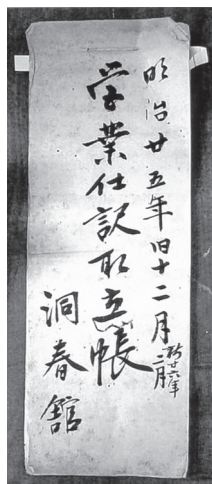 明治廿五年旧十二月
新廿六年
二月
営業仕訳取立帳
洞春舘